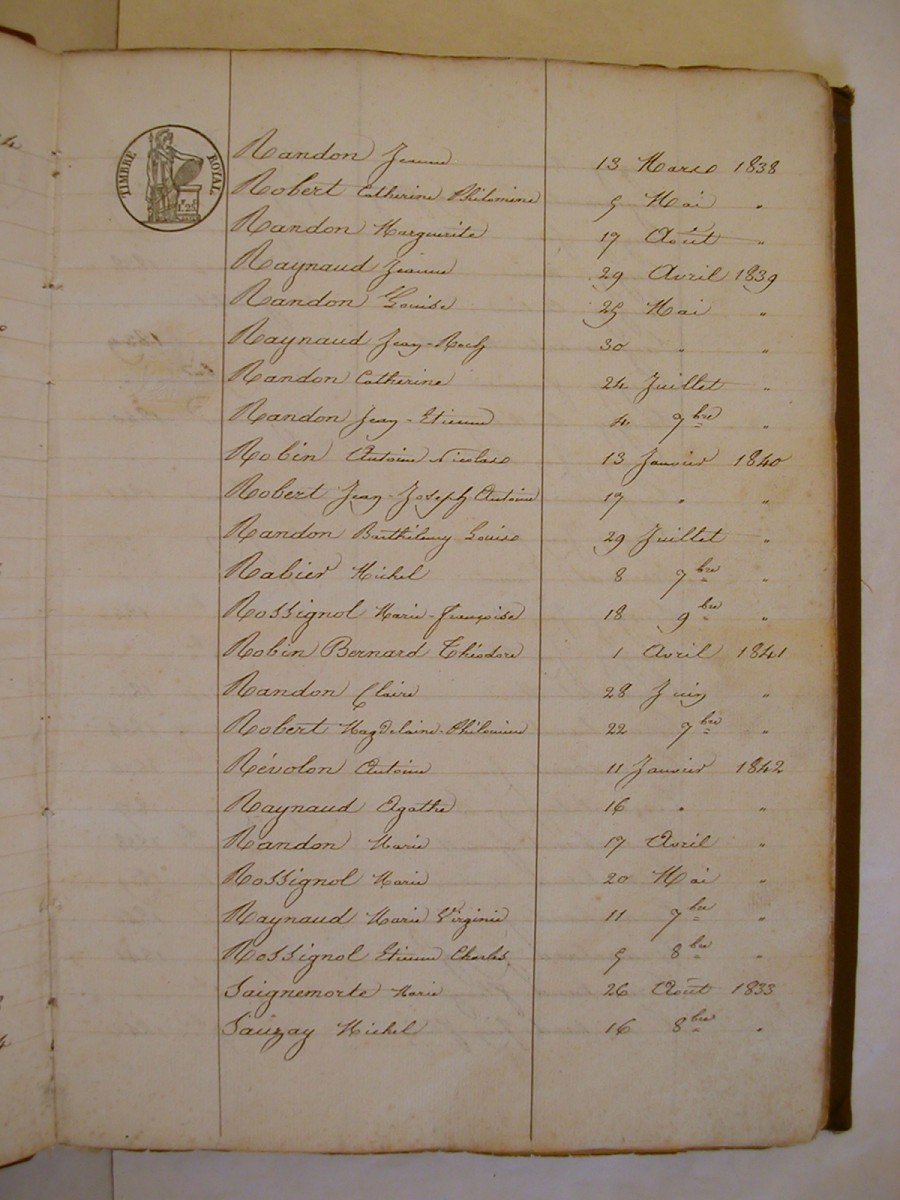 TIMBRE ROYAL
Randon Jeanne 13 Mars 1838
Robert Catherine Philomène 5 Mai "
Randon Marguerite 17 Août "
Raynaud Jeanne 29 Avril 1839
Randon Louise 25 Mai "
Raynaud Jean-Roch 30 " "
Randon Catherine 24 Juillet "
Randon Jean-Etienne 4 7bre "
Robin Antoine Nicolas 13 Janvier 1840
Robert Jean-Joseph Antoine 17 " "
Randon Barthélemy Louise 29 Juillet "
Rabier Michel 8 7bre "
Rossignol Marie-Françoise 18 9bre "
Robin Bernard Théodore 1 Avril 1841
Randon Claire 28 Juin "
Robert Magdelaine-Philomine 22 7bre "
Révolon Antoine 11 Janvier 1842
Raynaud Agathe 16 " "
Randon Marie 17 Avril "
Rossignol Marie 20 Mai "
Raynaud Marie Virginie 11 7bre "
Rossignol Etienne Charles 5 8bre "
Saignemorte Marie 26 Août 1833
Sauzay Michel 16 8bre "